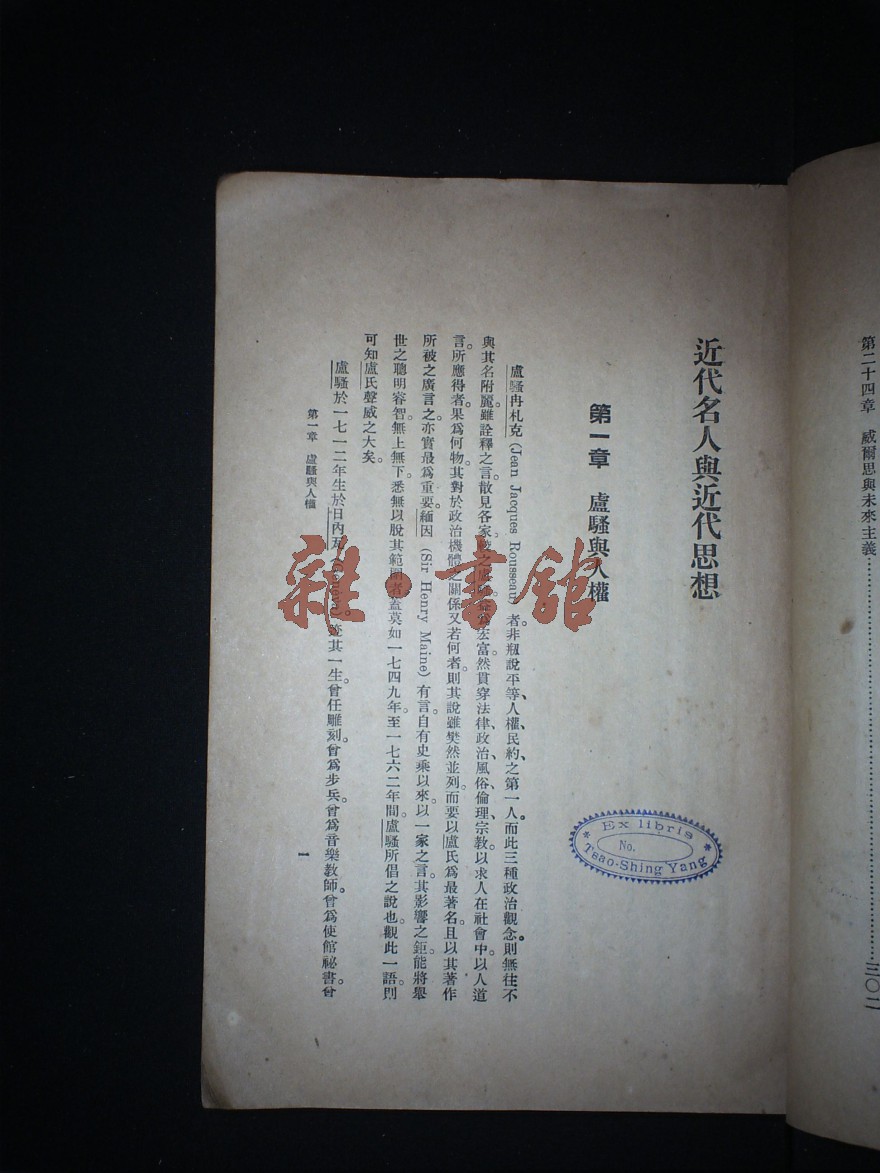 第二十四章　威爾思與未來主義……三〇二
近代名人與近代思想
第一章　盧騷與人權
盧騷冉札克 (Jean Jacques Rousseau) 者。非剏說平等、人權、民約、之第一人。而此三種政治觀念。則無往不
與其名附麗。雖詮釋之言。散見各家。宏富。然貫穿法律、政治、風俗、倫理、宗教。以求人在社會中。以人道
言。所應得者。果爲何物。其對於政治機體之關係。又若何者。則其說雖樊然並列。而要以盧氏爲最著名。且以其著作
所被之廣言之。亦實最爲重要。緬因 (Sir Henry Maine) 有言。自有史乘以來。以一家之言。其影響之鉅。能將舉
世之聰明睿智。無上無下。悉無以脫其範圍者。蓋莫如一七四九年至一七六二年間。盧騷所倡之說也。觀此一語。則
可知盧氏聲威之大矣。
盧騷於一七一二年生於日內瓦 (Geneva) 迹其一生。曾任雕刻。曾爲步兵。曾爲音樂教師。曾爲使館祕書。曾
第一章　盧騷與人權
一
Ex libris
No.
Tsao-Shing Yang
雜·書館